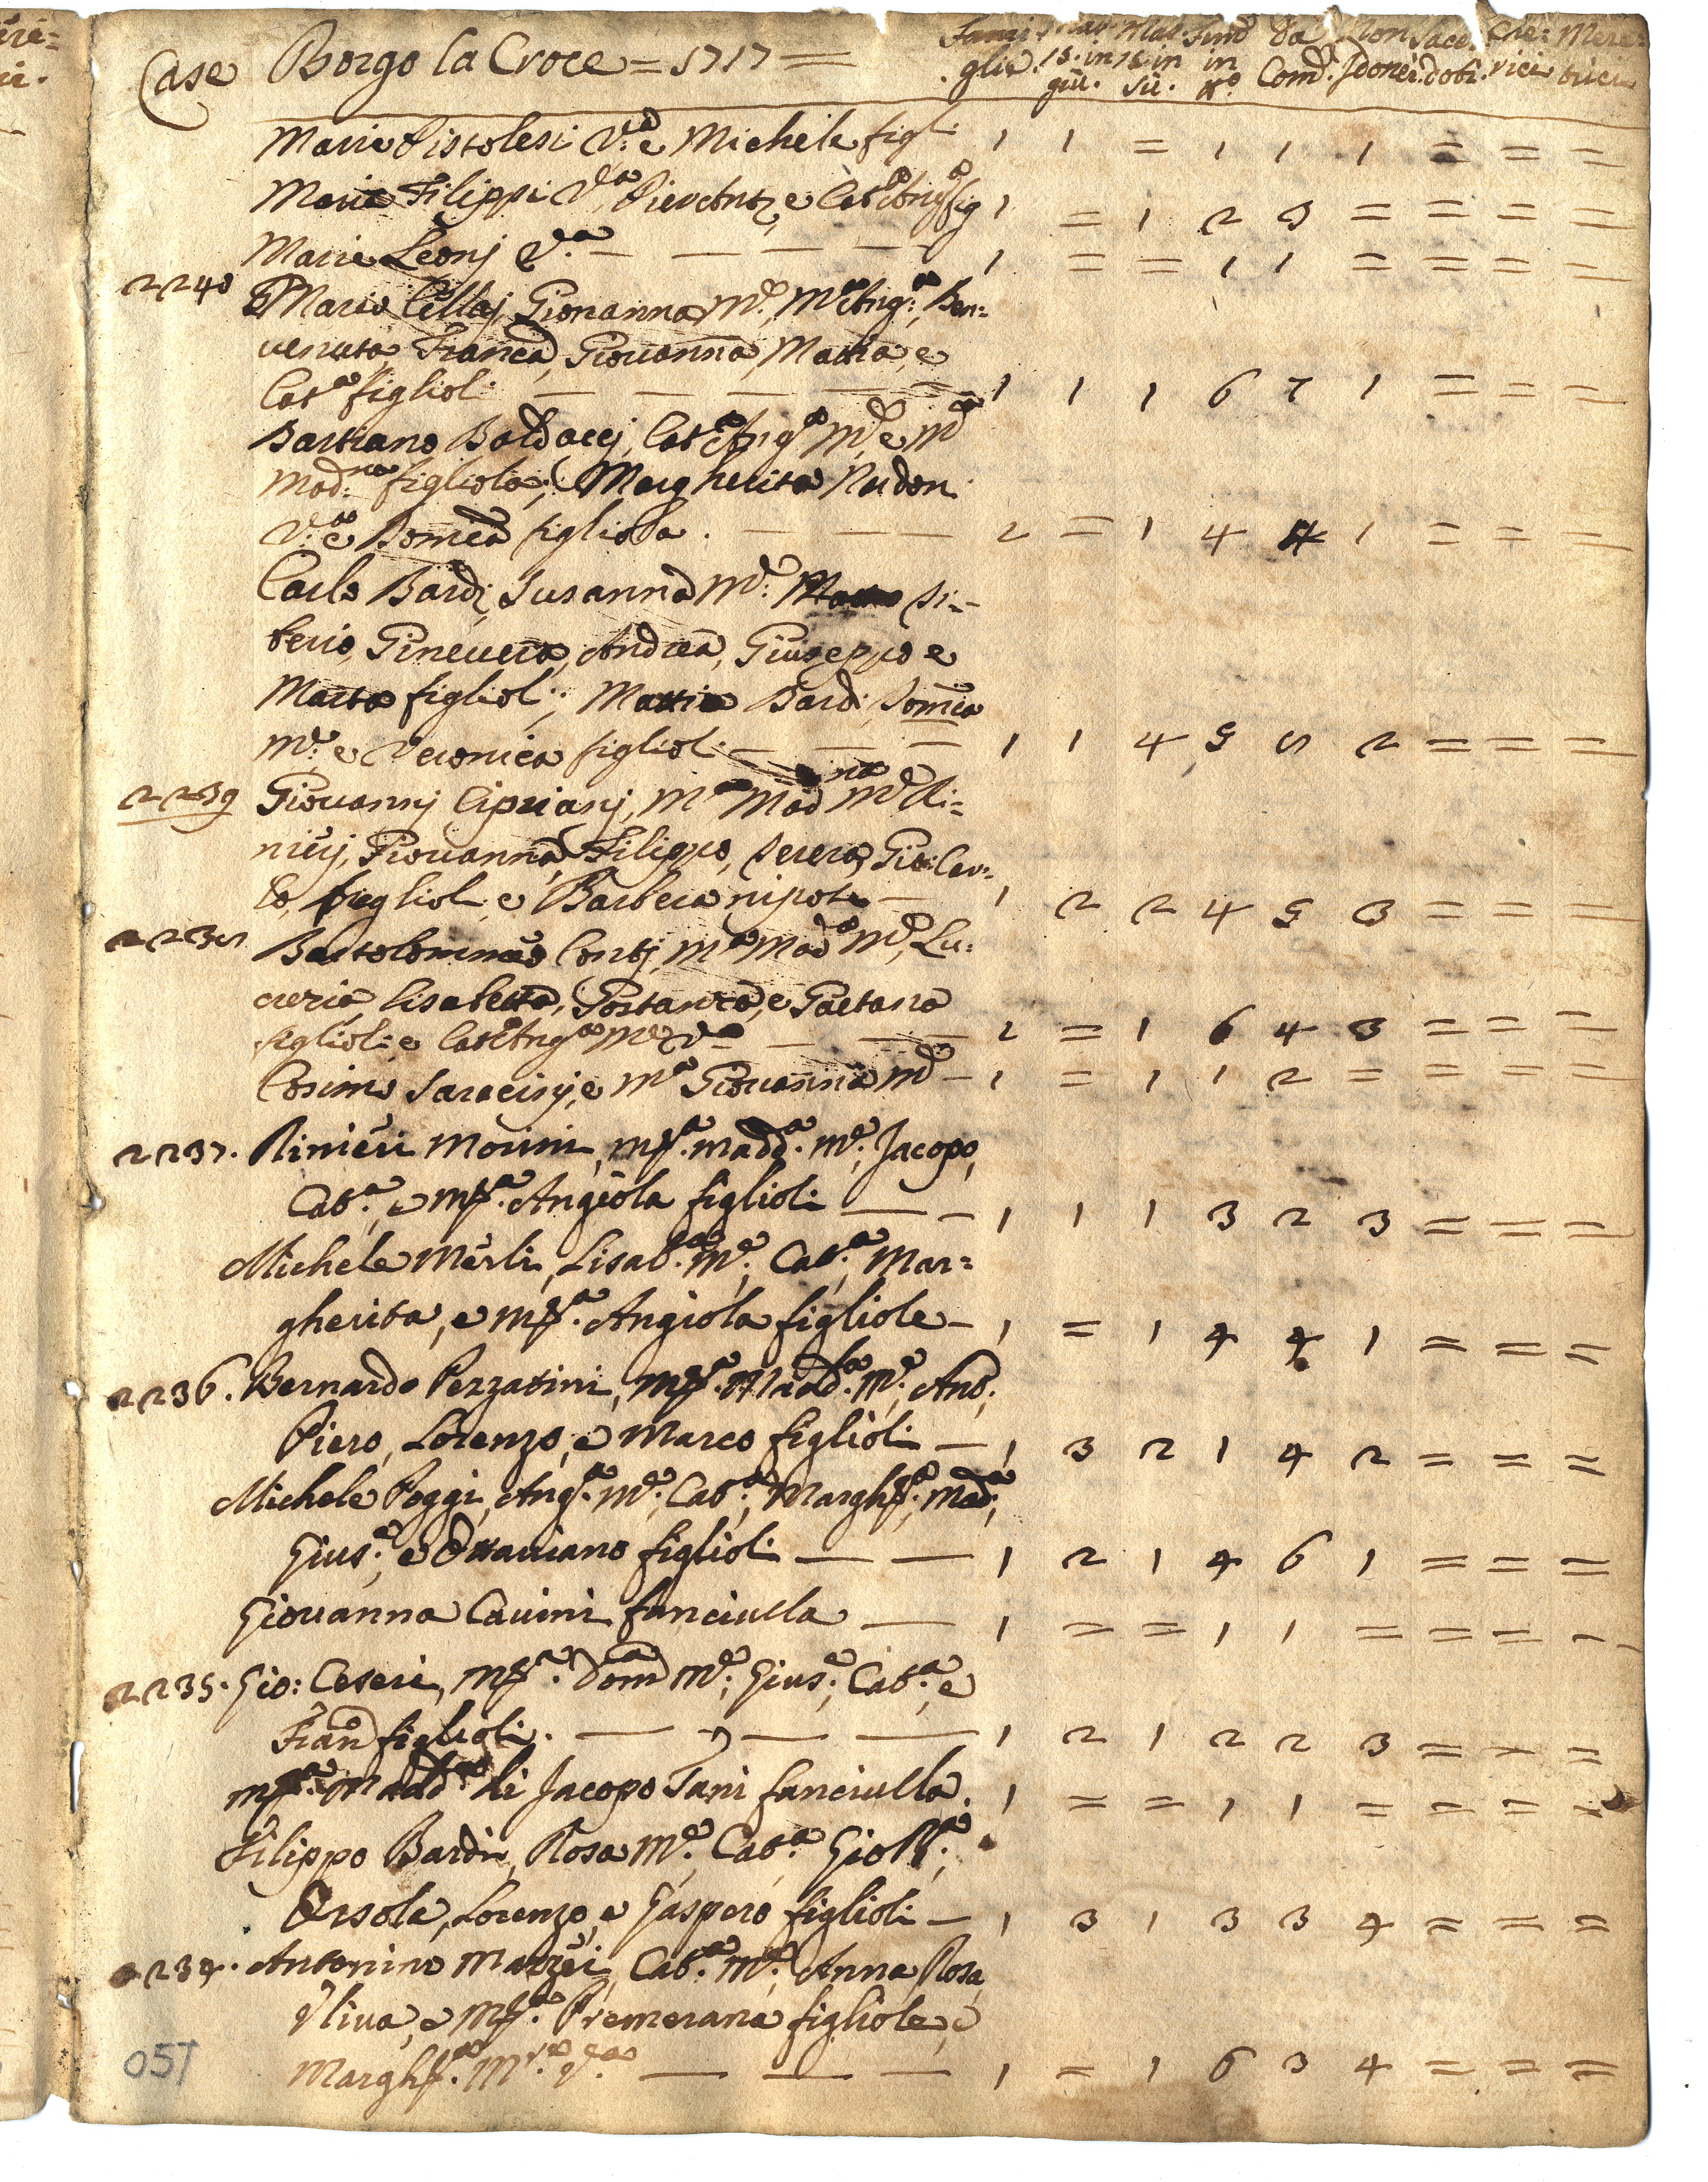 Case Borgo la Croce = 1717 =
Fami glie. Mas. 15. in giù. Mas. 15 in sù. Fem̃ in x.o Da Com.e Non Idonei. Sacer doti. Che: rici Mere: trici
Maria Pistolesi V.a e Michele figl. 1 1 = 1 1 1 = = =
Maria Filippi V.a Pier Ant.o, e Cat.a Ang.a fig 1 = 1 2 3 = = = =
Maria Leonj V.a — — — — 1 = = 1 1 = = = —
2240 Mario Cellaj, Giouanna M.e, M.a Ang.a, Ben=
uenuta, Franc.a, Giouanna, Mattia, e
Cat.a figlioli — — — — 1 1 1 6 7 1 = = =
Bastiano Baldaccj, Cat.a Ang.a M.e e M.a
Mad.na figliola; Margherita Nardoni
V.a e Dom.ca figliola. — — — 2 = 1 4 4 1 = = =
Carlo Bardi, Susanna M.e: Si=
berio, Gineuera, Andrea, Giuseppe e
Marta figlioli; Mattia Bardi, Dom.ca
M.e e Veronica figliol: — — — 1 1 4 5 5 2 = = =
2239 Giouannj Ciprianj, M.a Mad.na M.e Ri=
nierj, Giouanna, Filippo, Seuero, Gio: Car=
lo, figlioli, e Barbera nipote — 1 2 2 4 5 3 = = =
2238 Bartolommeo Contj, M.a Mad.a M.e, Lu=
crezia, Lisabetta, Gostanza, e Gaetana
figlioli: e Cat.a Ang.a M.e V.a — — — 2 = 1 6 4 3 = = =
Cosimo Saracinj, e M.a Giouanna M.e — 1 = 1 1 2 = = = =
2237. Rinieri Morini, M.a Madd.a M.e, Jacopo,
Cat.a, e M.a Angiola figlioli — — 1 1 1 3 2 3 = = =
Michele Merli, Lisab.a M.e, Cat.a, Mar=
gherita, e M.a Angiola figliole — 1 = 1 4 4 1 = = =
2236. Bernardo Pezzatini, M.a Madd.a M.e, Ant.o,
Piero, Lorenzo, e Marco figlioli — 1 3 2 1 4 2 = = =
Michele Poggi, Ang.a M.e, Cat.a, Margh.a, Mad.a,
Gius.e, e Ottauiano figlioli — — 1 2 1 4 6 1 = = =
Giouanna Cauini fanciulla — 1 = = 1 1 = = = =
2235. Gio: Ceseri, M.a Dom.a M.e, Gius.e, Cat.a, e
Fran.o figlioli. — — — 1 2 1 2 2 3 = = =
M.a Madd.a di Jacopo Tani fanciulla. 1 = = 1 1 = = = =
Filippo Bardi, Rosa M.e, Cat.a, Gio B.a,
Orsola, Lorenzo, e Gaspero figlioli — 1 3 1 3 3 4 = = =
2234. Antonino Mazzei, Cat.a M.e, Anna, Rosa
Uliua, e M.a Premerana figliole, e
Margh.a M.re V.a — — — 1 = 1 6 3 4 = = =
057